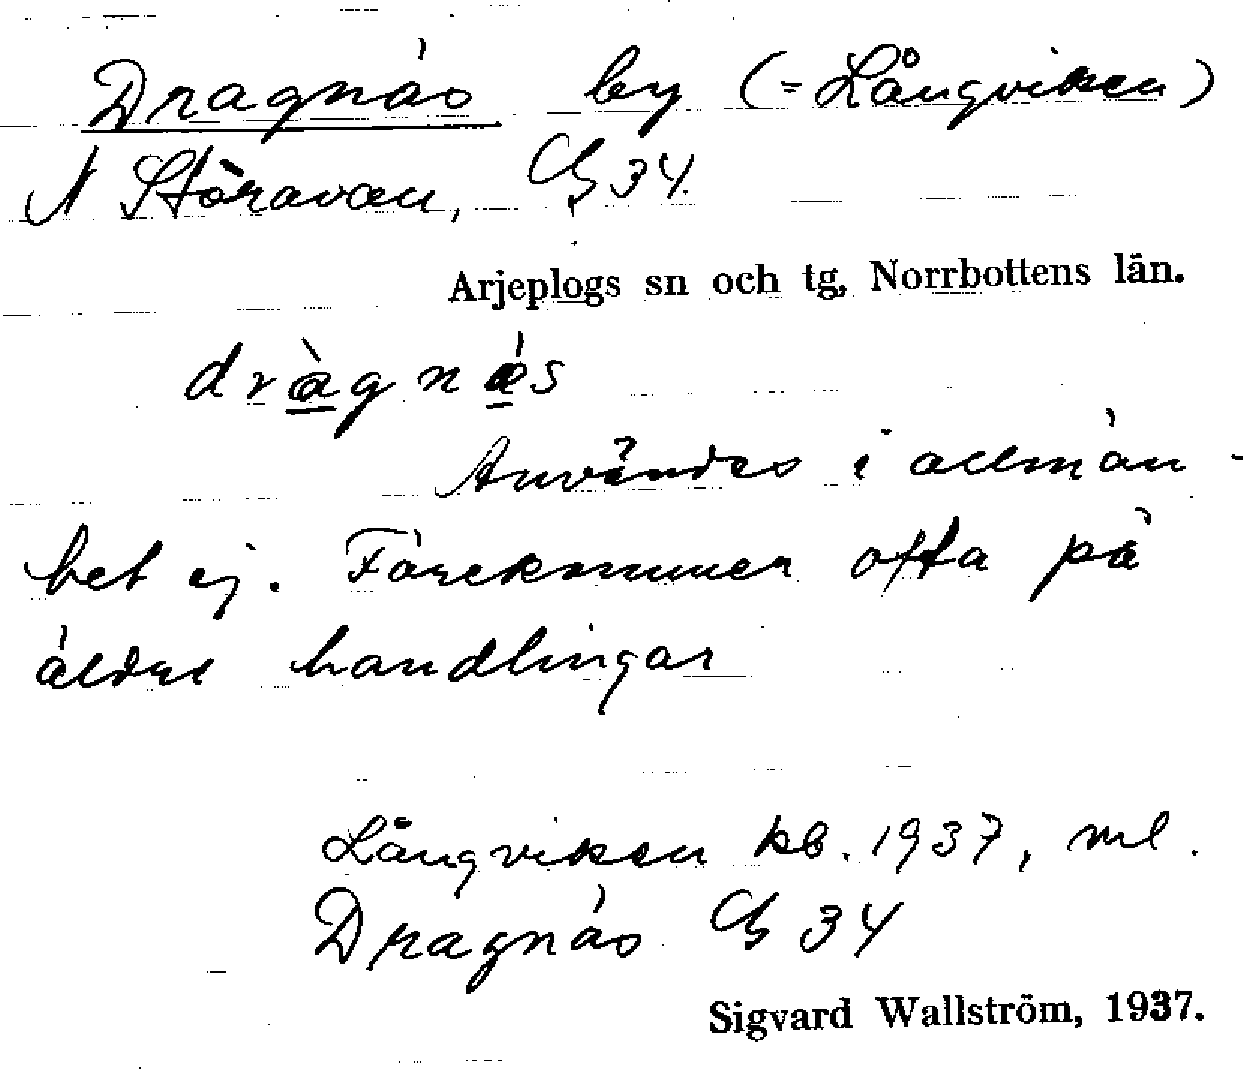 Dragnäs by (= Långviken)
N Storavan, G 34.
Arjeplogs sn och tg, Norrbottens län.
dràgnä́s
Användes i allmän-
het ej. Förekommer ofta på
äldre handlingar
Långviken kb. 1937, ml.
Dragnäs G 34
Sigvard Wallström, 1937.